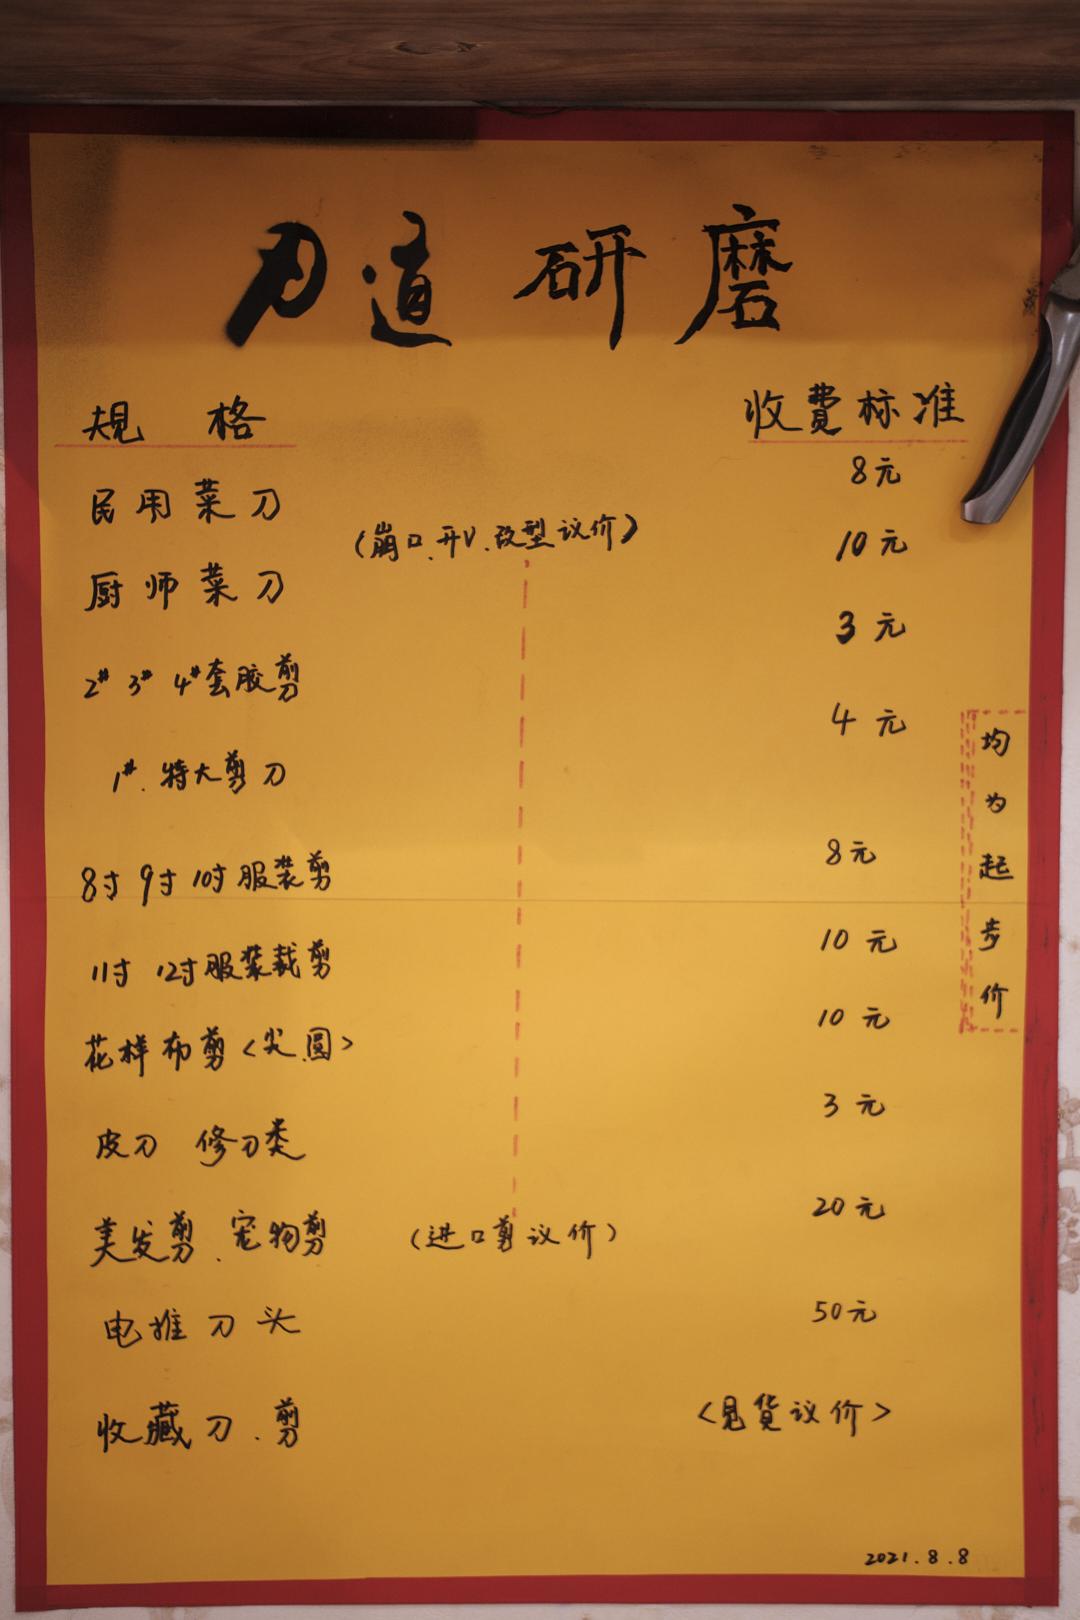 刀道研磨
规格 收费标准
民用菜刀 8元
(崩口.开V.改型议价)
厨师菜刀 10元
2# 3# 4#套胶剪 3元
1#.特大剪刀 4元
8寸 9寸 10寸服装剪 8元
11寸 12寸服装裁剪 10元
花样布剪<尖.圆> 10元
皮刀 修刀类 3元
美发剪.宠物剪 (进口剪议价) 20元
电推刀头 50元
收藏刀.剪 <见货议价>
均为起步价
2021.8.8